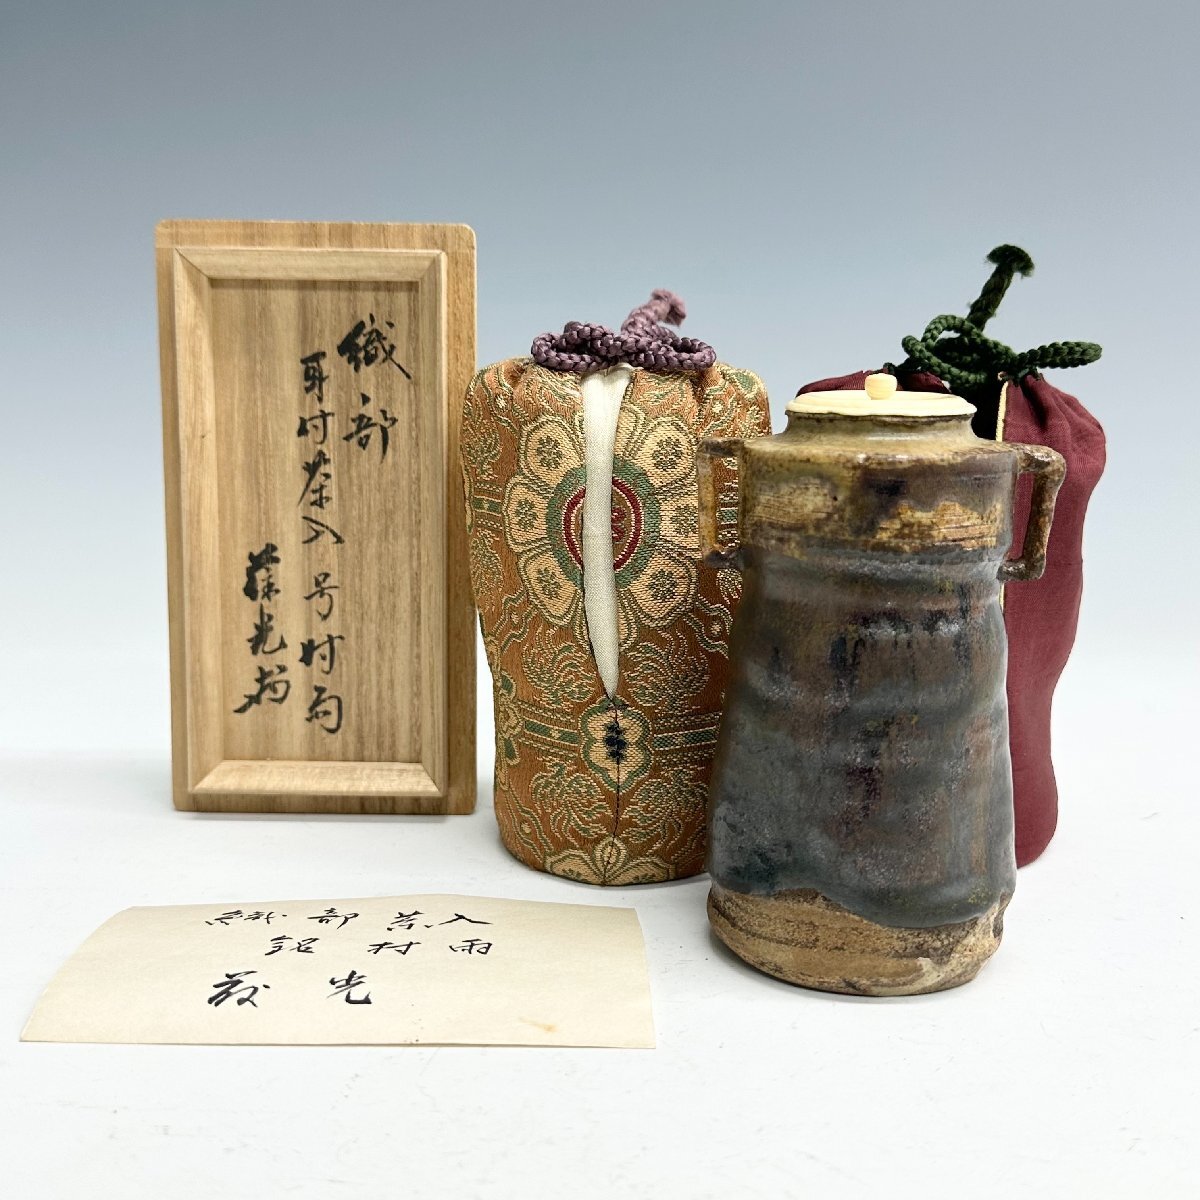 織部
耳付茶入 号 村雨
藤光
織部茶入
銘 村雨
光